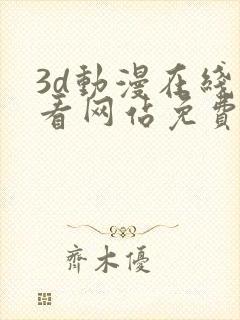 3d動漫在綫
看网佔免費
齊木優